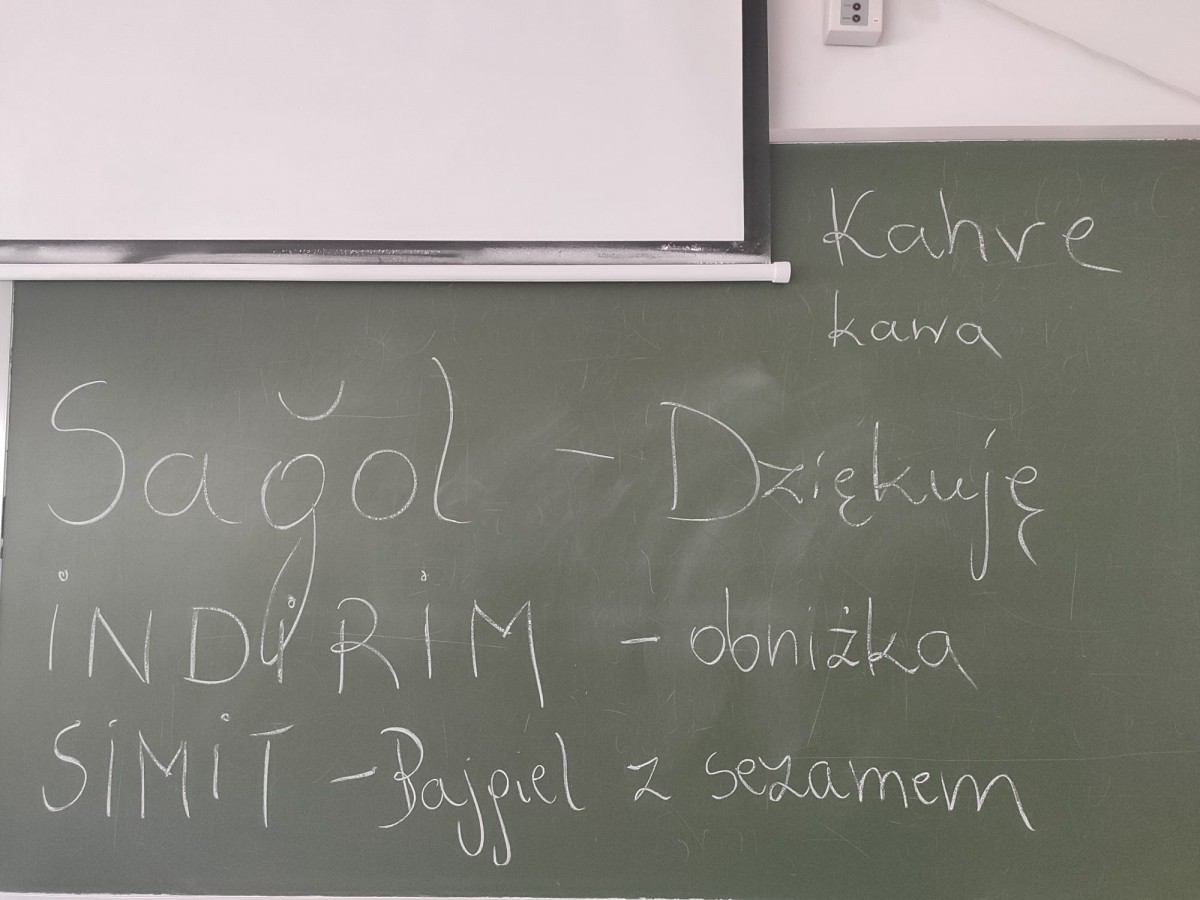 Kahve
kawa
Sağol - Dziękuję
İNDİRİM - obniżka
SİMİT - Bajgiel z sezamem